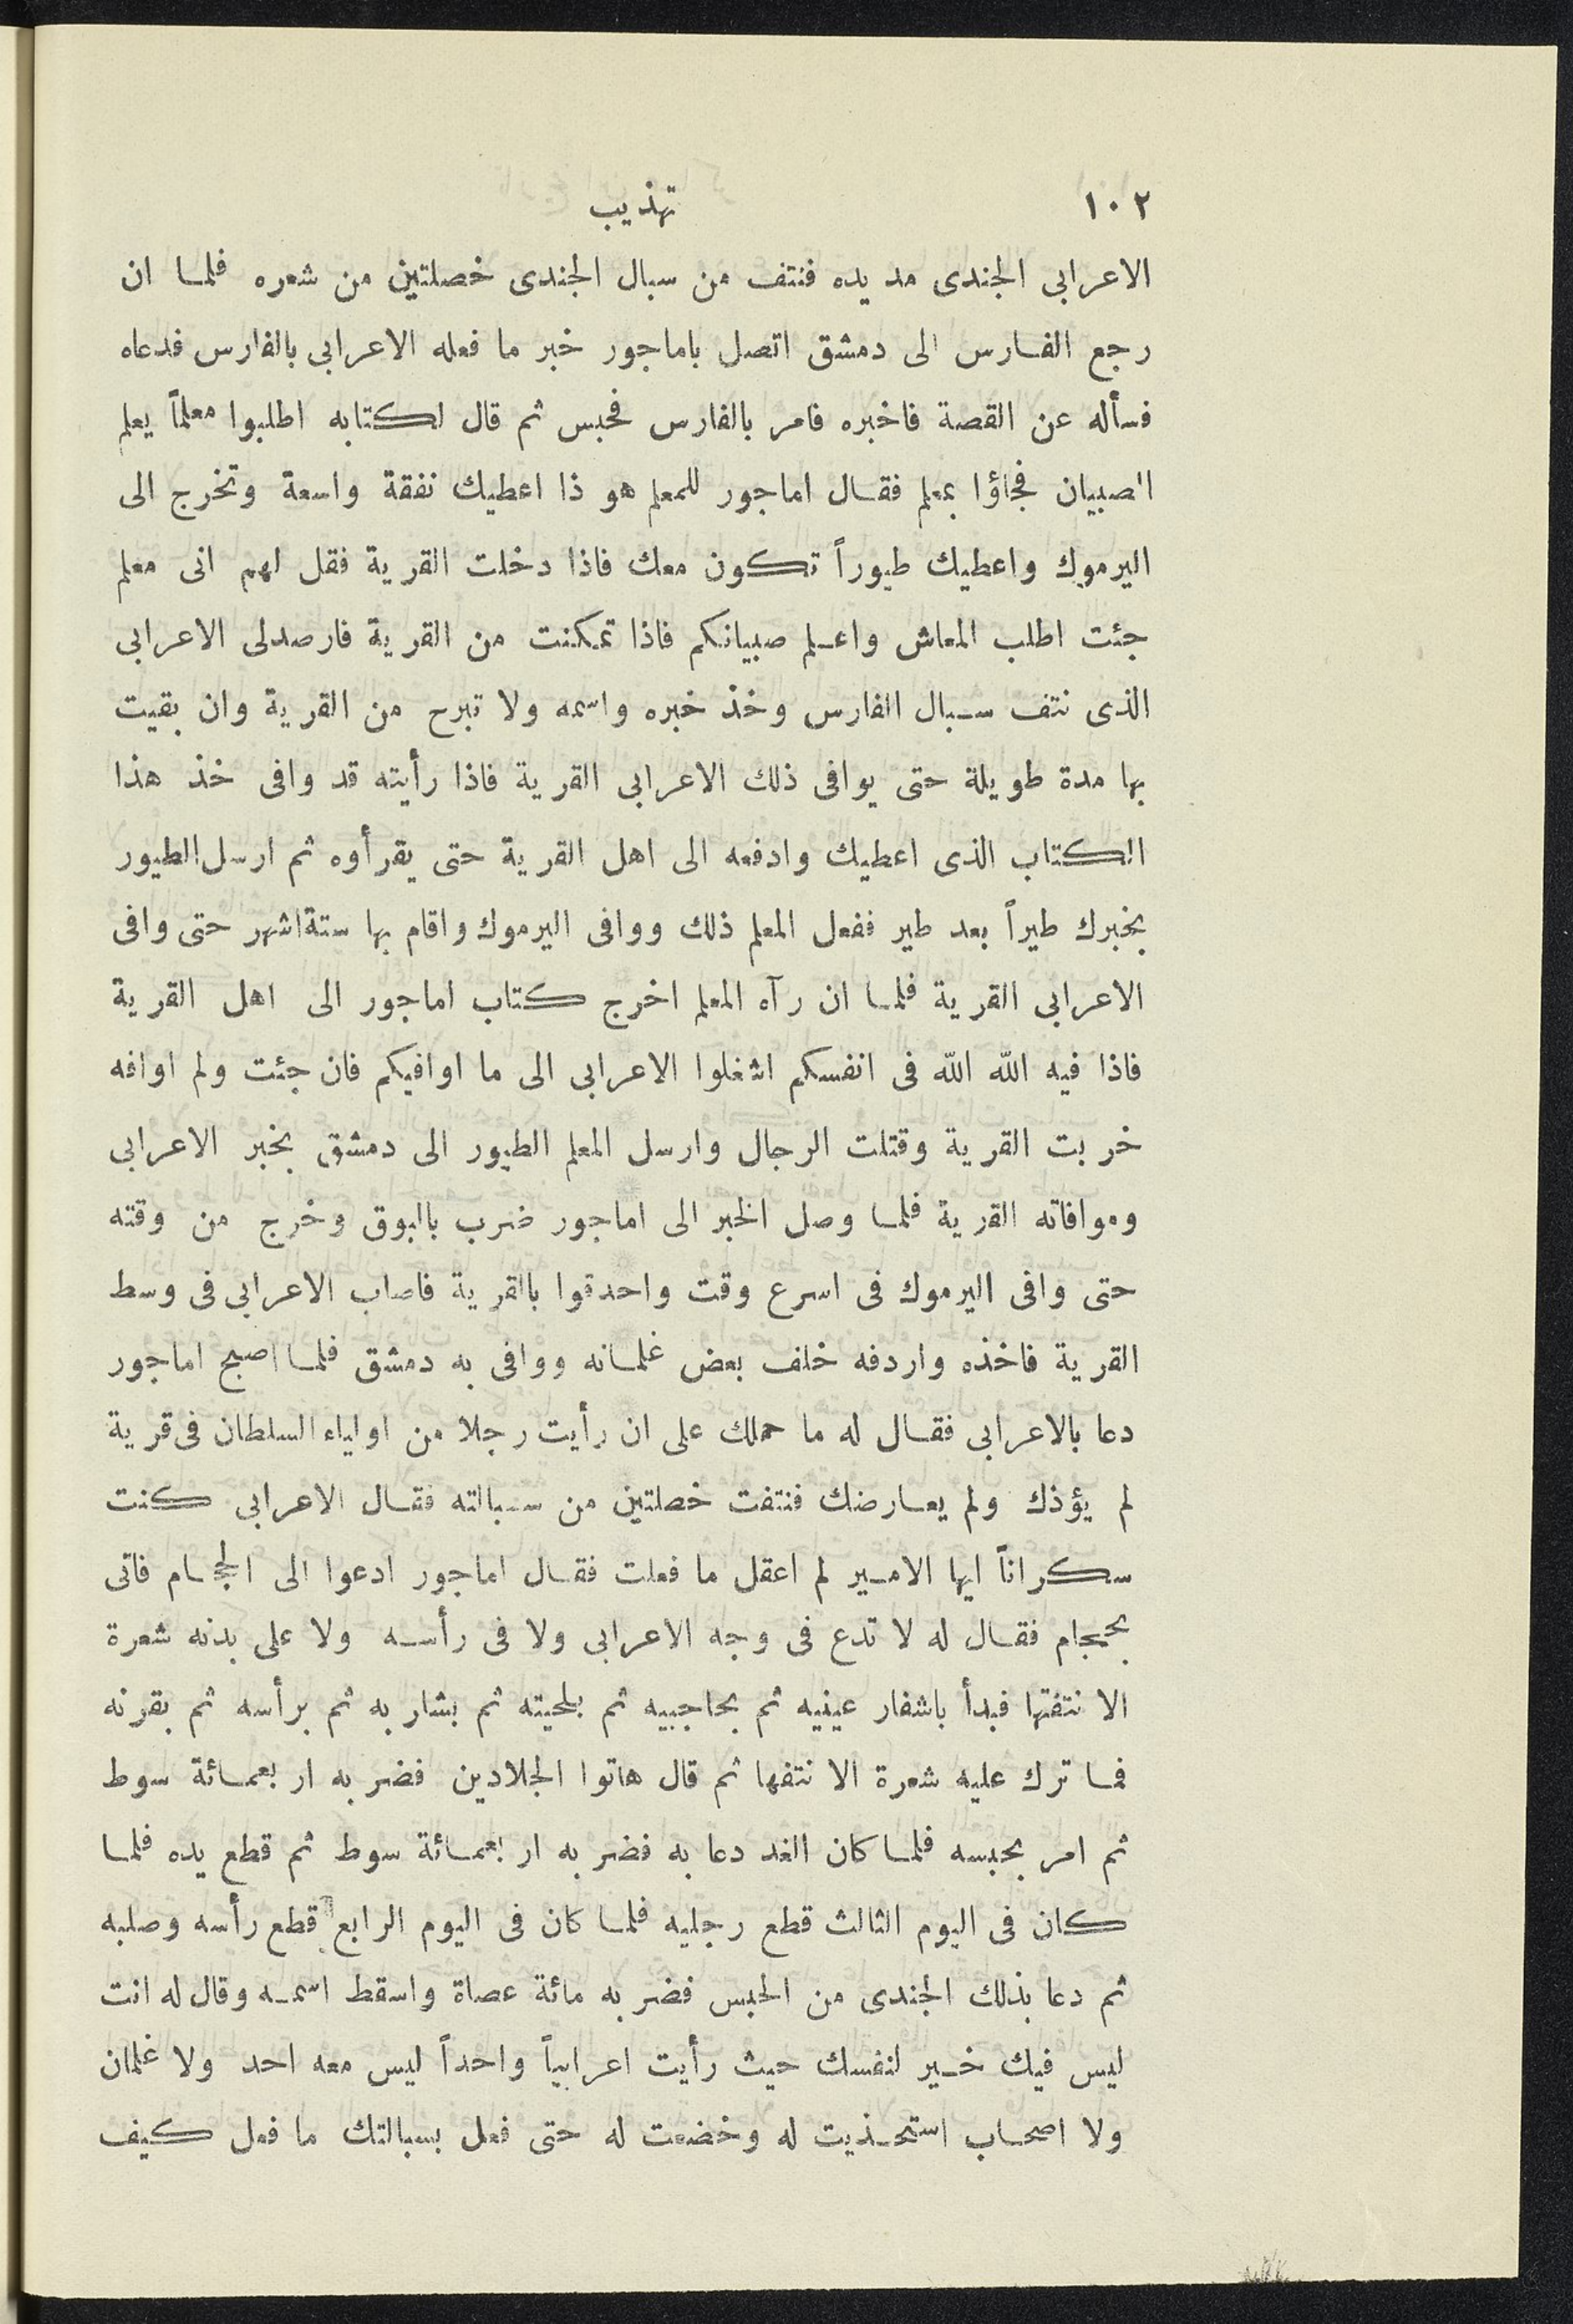 ١٠٢ تهذيب
الاعرابى الجندى مد يده فنتف من سبال الجندى خصلتين من شعره فلما ان
رجع الفارس الى دمشق اتصل باماجور خبر ما فعله الاعرابى بالفارس فدعاه
فسأله عن القصة فاخبره فامر بالفارس فحبس ثم قال لكتابه اطلبوا معلماً يعلم
الصبيان فجاؤا بمعلم فقال اماجور للمعلم هو ذا اعطيك نفقة واسعة وتخرج الى
اليرموك واعطيك طيوراً تكون معك فاذا دخلت القرية فقل لهم انى معلم
جئت اطلب المعاش واعلم صبيانكم فاذا تمكنت من القرية فارصدلى الاعرابى
الذى نتف سبال الفارس وخذ خبره واسمه ولا تبرح من القرية وان بقيت
بها مدة طويلة حتى يوافى ذلك الاعرابى القرية فاذا رأيته قد وافى خذ هذا
الكتاب الذى اعطيك وادفعه الى اهل القرية حتى يقرأوه ثم ارسل الطيور
بخبرك طيراً بعد طير ففعل المعلم ذلك ووافى اليرموك واقام بها ستة اشهر حتى وافى
الاعرابى القرية فلما ان رآه المعلم اخرج كتاب اماجور الى اهل القرية
فاذا فيه الله الله فى انفسكم اشغلوا الاعرابى الى ما اوافيكم فان جئت ولم اوافه
خربت القرية وقتلت الرجال وارسل المعلم الطيور الى دمشق بخبر الاعرابى
وموافاته القرية فلما وصل الخبر الى اماجور ضرب بالبوق وخرج من وقته
حتى وافى اليرموك فى اسرع وقت واحدقوا بالقرية فاصاب الاعرابى فى وسط
القرية فاخذه واردفه خلف بعض غلمانه ووافى به دمشق فلما اصبح اماجور
دعا بالاعرابى فقال له ما حملك على ان رأيت رجلا من اولياء السلطان فى قرية
لم يؤذك ولم يعارضك فنتفت خصلتين من سبالته فقال الاعرابى كنت
سكراناً ايها الامير لم اعقل ما فعلت فقال اماجور ادعوا الى الحجام فاتى
بحجام فقال له لا تدع فى وجه الاعرابى ولا فى رأسه ولا على بدنه شعرة
الا نتفتها فبدأ باشفار عينيه ثم بحاجبيه ثم بلحيته ثم بشاربه ثم برأسه ثم بقرنه
فما ترك عليه شعرة الا نتفها ثم قال هاتوا الجلادين فضربه اربعمائة سوط
ثم امر بحبسه فلما كان الغد دعا به فضربه اربعمائة سوط ثم قطع يده فلما
كان فى اليوم الثالث قطع رجليه فلما كان فى اليوم الرابع قطع رأسه وصلبه
ثم دعا بذلك الجندى من الحبس فضربه مائة عصاة واسقط اسمه وقال له انت
ليس فيك خير لنفسك حيث رأيت اعرابياً واحداً ليس معه احد ولا غلمان
ولا اصحاب استحذيت له وخضعت له حتى فعل بسبالتك ما فعل كيف